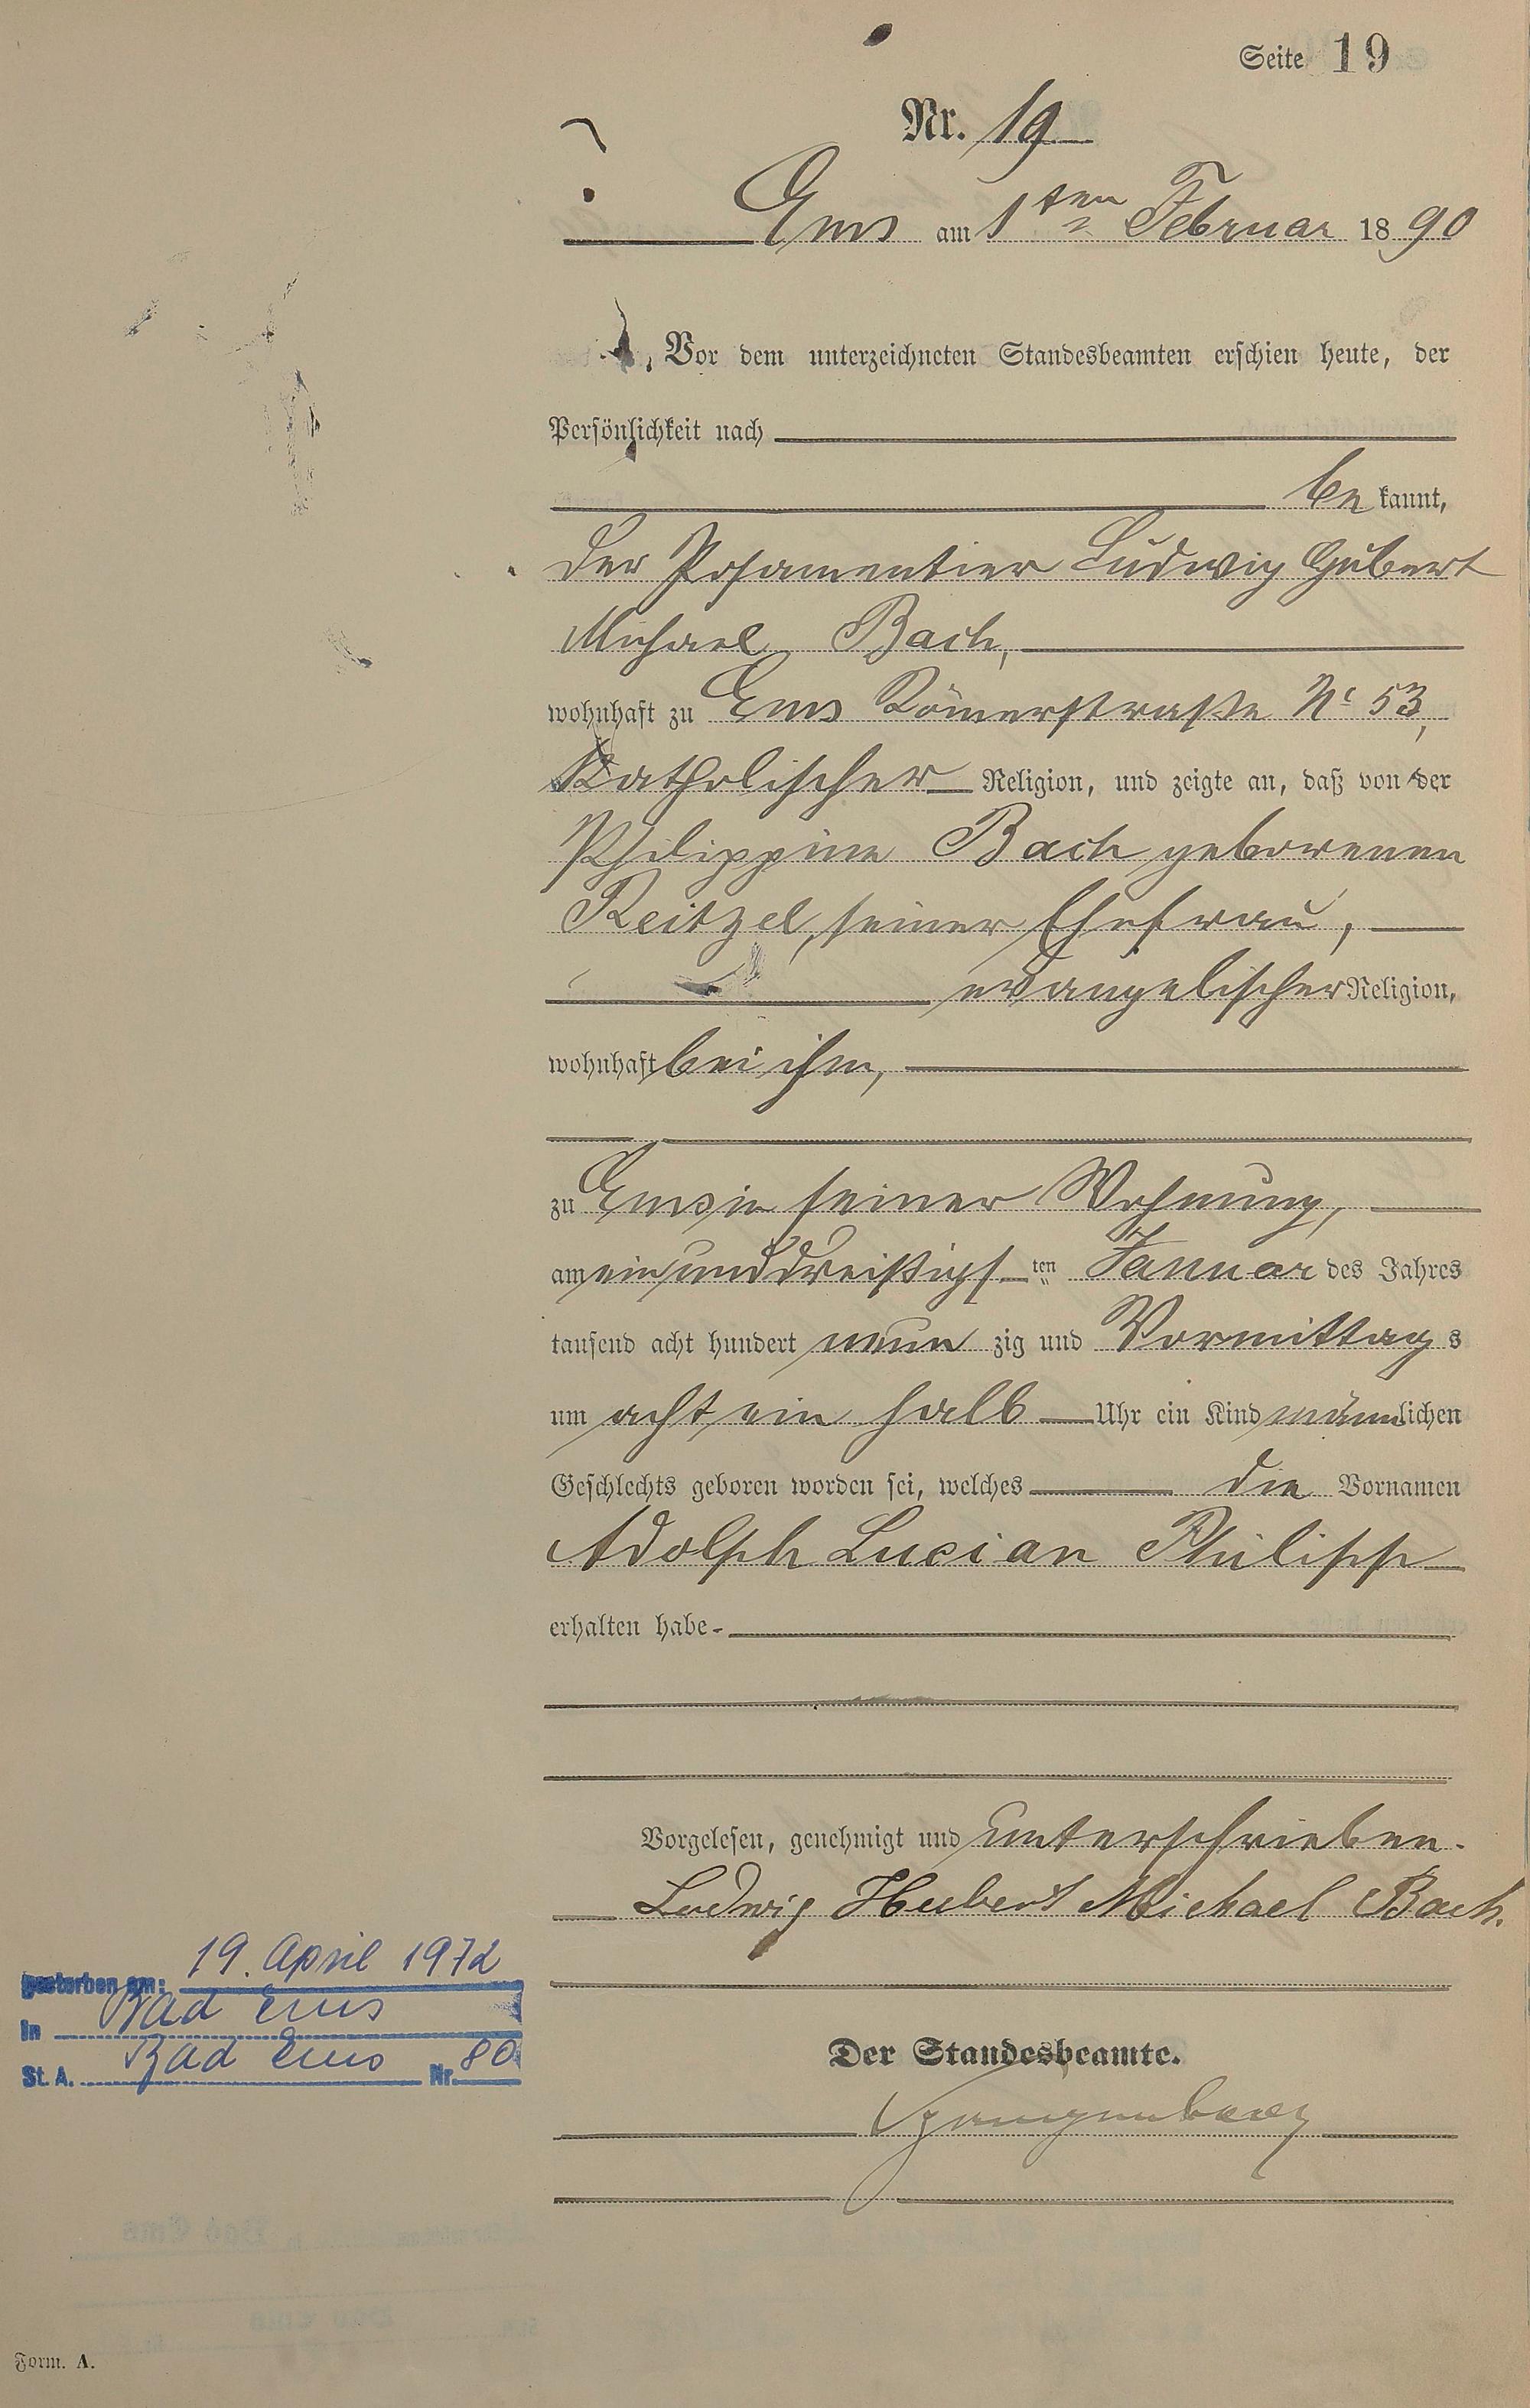 Seite 19
Nr. 19
Ems am 1ten Februar 1890
Vor dem unterzeichneten Standesbeamten erschien heute, der
Persönlichkeit nach
bekannt,
der Posamentier Ludwig Hubert
Michael Bach,
wohnhaft zu Ems Römerstraße No 53,
Katholischer Religion, und zeigte an, daß von der
Philippine Bach geborenen
Reitzel, seiner Ehefrau,
evangelischer Religion,
wohnhaft bei ihm,
zu Ems in seiner Wohnung,
am einunddreißigsten Januar des Jahres
tausend acht hundert neunzig und Vormittags
um acht ein halb Uhr ein Kind männlichen
Geschlechts geboren worden sei, welches die Vornamen
Adolph Lucian Philipp
erhalten habe
Vorgelesen, genehmigt und unterschrieben.
Ludwig Hubert Michael Bach.
Der Standesbeamte.
gestorben am: 19. April 1972
in Bad Ems
St. A. Bad Ems Nr. 80
Form. A.